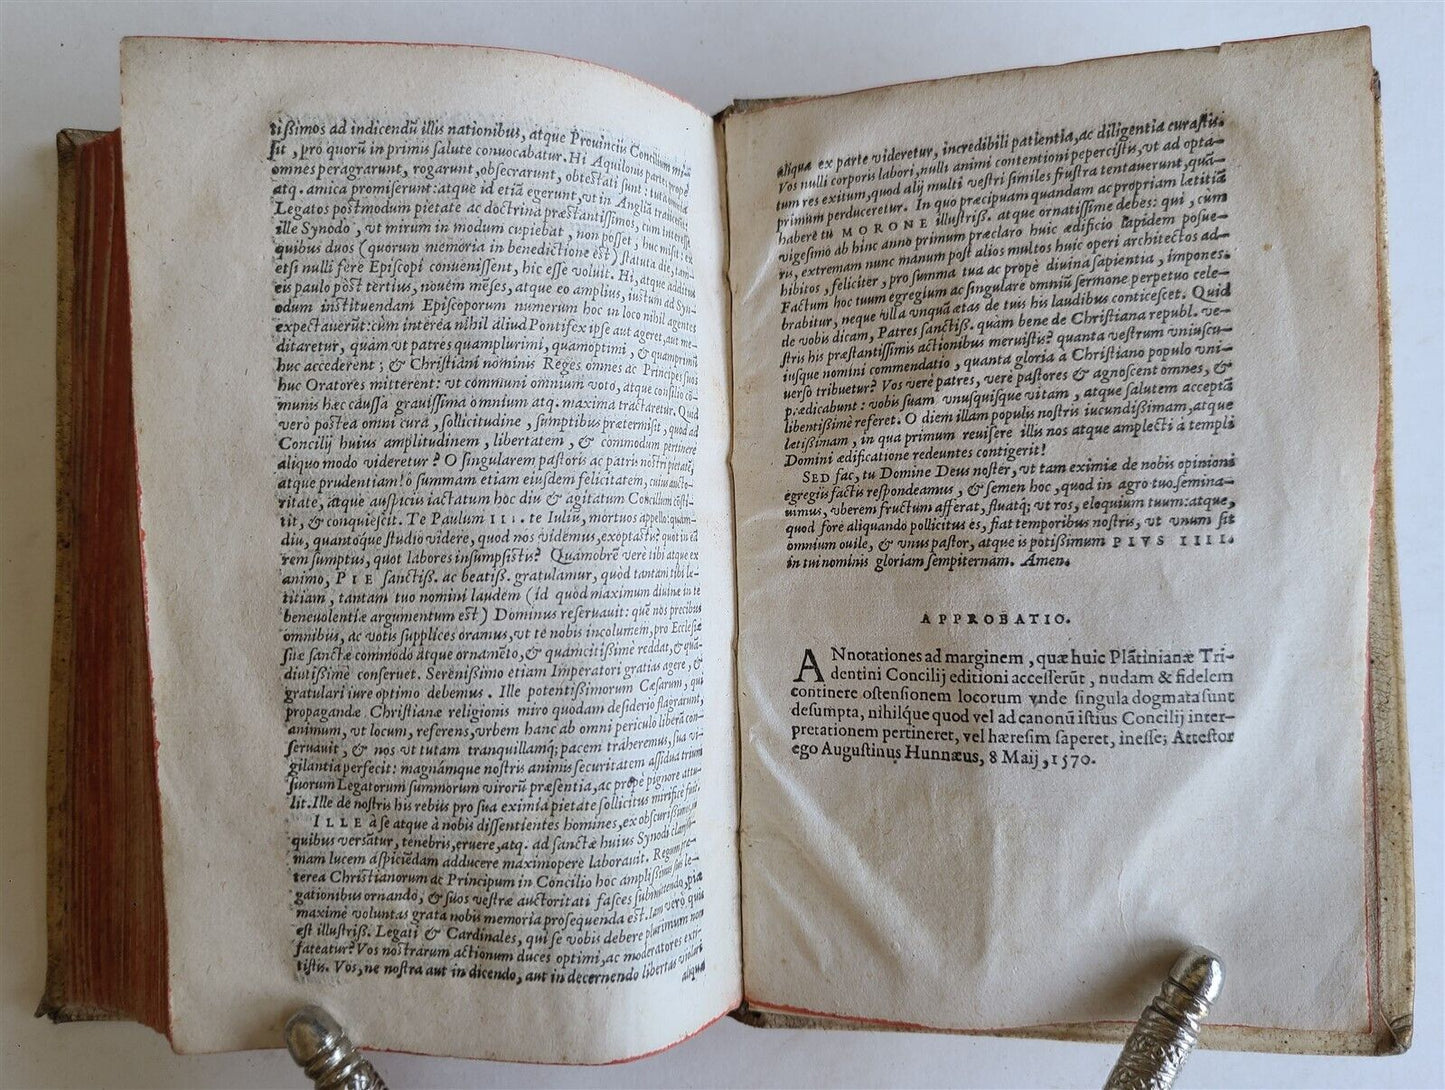 tißimos ad indicendũ illis nationibus, atque Provinciis Concilium mi-
sit, pro quorũ in primis salute convocabatur. Hi Aquilonis parte, propè
omnes peragrarunt, rogarunt, obsecrarunt, obtestati sunt: tuta omnia
atq. amica promiserunt: atque id etiã egerunt, ut in Angliã traiicerẽt.
Legatos postmodum pietate ac doctrina præstantissimos, cum interesse
ille Synodo, ut mirum in modum cupiebat, non posset, huc misit: ex
quibus duos (quorum memoria in benedictione est) statuta die, tam-
etsi nulli ferè Episcopi convenissent, hic esse voluit. Hi, atque additus
eis paulo pòst tertius, novem mẽses, atque eo amplius, iustum ad Syn-
odum instituendam Episcoporum numerum hoc in loco nihil agentes
expectauerũt: cùm interea nihil aliud Pontifex ipse aut ageret, aut me-
ditaretur, quàm ut patres quamplurimi, quamoptimi, & quamprimũ
huc accederent; & Christiani nominis Reges omnes ac Principes suos
huc Oratores mitterent: ut communi omnium voto, atque consilio cõ-
munis hæc caussa grauissima omnium atq. maxima tractaretur. Quid
verò postea omni cura, sollicitudine, sumptibus prætermisit, quod ad
Concilij huius amplitudinem, libertatem, & commodum pertinere
aliquo modo videretur? O singularem pastoris ac patris nostri pietatẽ,
atque prudentiam! ô summam etiam eiusdem felicitatem, cuius aucto-
ritate, atque auspiciis iactatum hoc diu & agitatum Concilium cõsti-
tit, & conquiescit. Te Paulum III. te Iulium, mortuos appello: quàm-
diu, quantoque studio videre, quod nos videmus, exoptastis? quot in eã
rem sumptus, quot labores insumpsistis? Quamobrẽ verè tibi atque ex
animo, PIE sanctiß. ac beatiß. gratulamur, quòd tantam tibi læ-
titiam, tantam tuo nomini laudem (id quòd maximum diuinæ in te
beneuolentiæ argumentum est) Dominus reseruauit: quẽ nos precibus
omnibus, ac votis supplices oramus, ut te nobis incolumem, pro Ecclesiæ
suæ sanctæ commodo atque ornamẽto, & quàmcitissimè reddat, & quàm-
diutissimè conseruet. Serenissimo etiam Imperatori gratias agere, &
gratulari iure optimo debemus. Ille potentissimorum Cæsarum, qui
propagandæ Christianæ religionis miro quodam desiderio flagrarunt,
animum, ut locum, referens, urbem hanc ab omni periculo liberã con-
seruauit, & nos ut tutam tranquillamq; pacem traheremus, sua vi-
gilantia perfecit: magnámque nostris animis securitatem assidua trium
suorum Legatorum summorum virorũ præsentia, ac propè pignore attu-
lit. Ille de nostris his rebus pro sua eximia pietate sollicitus mirificè fuit.
ILLE à se atque à nobis dissentientes homines, ex obscurissimis, in
quibus versãtur, tenebris, eruere, atq. ad sanctæ huius Synodi clarissi-
mam lucem aspiciẽdam adducere maximopere laborauit. Regum præ-
terea Christianorum ac Principum in Concilio hoc amplissimis suis le-
gationibus ornando, & suos vestræ auctoritati fasces submittendo, pia
maximè voluntas grata nobis memoria prosequenda est. Iam verò quis
est illustriß. Legati & Cardinales, qui se vobis debere plurimum non
fateatur? Vos nostrarum actionum duces optimi, ac moderatores exti-
tistis. Vos, ne nostra aut in dicendo, aut in decernendo libertas violari
aliqua
aliqua ex parte videretur, incredibili patientia, ac diligentia curastis.
Vos nulli corporis labori, nulli animi contentioni pepercistis, ut ad opta-
tum res exitum, quod alij multi vestri similes frustra tentauerunt, quã-
primum perduceretur. In quo præcipuam quandam ac propriam lætitiã
habere tu MORONE illustriß. atque ornatissime debes: qui, cum
vigesimo ab hinc anno primum præclaro huic ædificio lapidem posue-
ris, extremam nunc manum post alios multos huic operi architectos ad-
hibitos, feliciter, pro summa tua ac propè divina sapientia, impones.
Factum hoc tuum egregium ac singulare omniũ sermone perpetuo cele-
brabitur, neque vlla vnquã ætas de tuis his laudibus conticescet. Quid
de vobis dicam, Patres sanctiß. quàm bene de Christiana republ. ve-
stris his præstantissimis actionibus meruistis? quanta vestrum vniuscu-
iusque nomini commendatio, quanta gloria à Christiano populo vni-
uerso tribuetur? Vos verè patres, verè pastores & agnoscent omnes, &
prædicabunt: vobis suam vnusquisque vitam, atque salutem acceptã
libentissimè referet. O diem illam populis nostris iucundißimam, atque
lætißimam, in qua primum reuisere illis nos atque amplecti à templi
Domini ædificatione redeuntes contigerit!
SED fac, tu Domine Deus noster, ut tam eximiæ de nobis opinioni
egregiis factis respondeamus, & semen hoc, quod in agro tuo semina-
uimus, vberem fructum afferat, fluatq; ut ros, eloquium tuum: atque,
quod fore aliquando pollicitus es, fiat temporibus nostris, ut vnum sit
omnium ouile, & vnus pastor, atque is potißimum PIVS IIII.
in tui nominis gloriam sempiternam. Amen.
APPROBATIO.
ANnotationes ad marginem, quæ huic Plãtinianæ Tri-
dentini Concilij editioni accesserũt, nudam & fidelem
continere ostensionem locorum vnde singula dogmata sunt
desumpta, nihilq́ue quod vel ad canonũ istius Concilij inter-
pretationem pertineret, vel hæresim saperet, inesse; Attestor
ego Augustinus Hunnæus, 8 Maij, 1570.